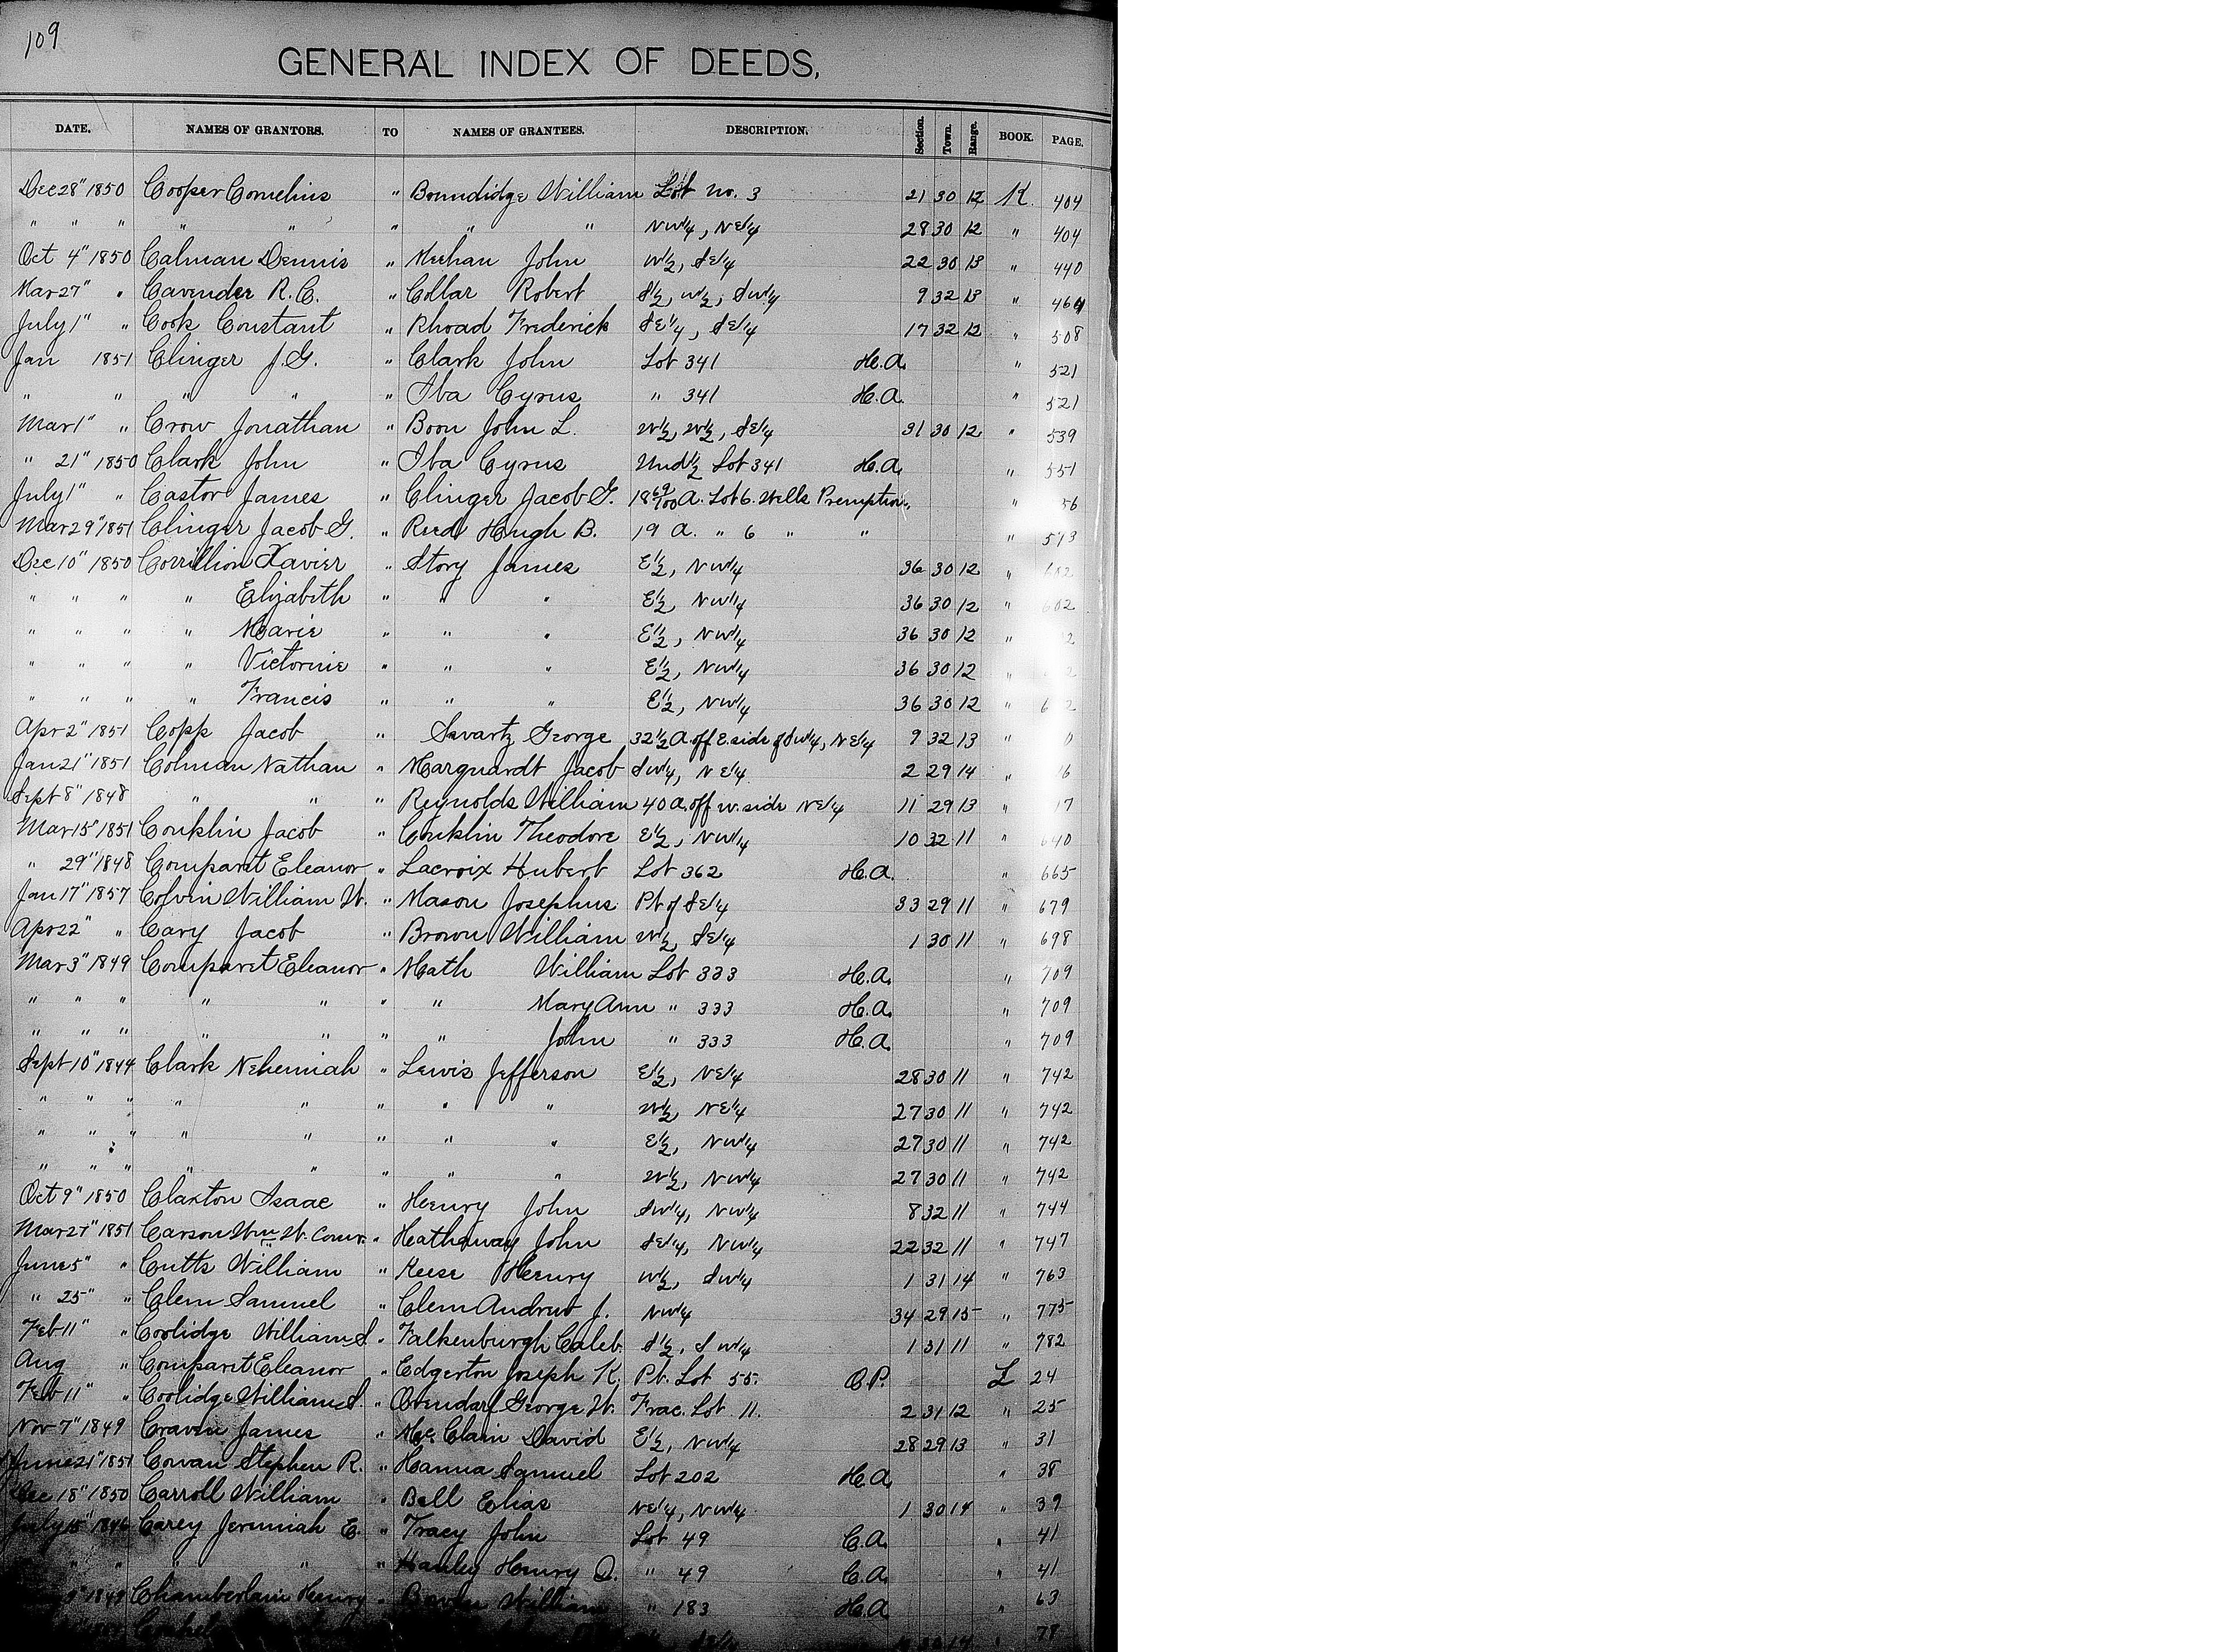 109
GENERAL INDEX OF DEEDS,
DATE. NAMES OF GRANTORS. TO NAMES OF GRANTEES. DESCRIPTION. Section. Town. Range. BOOK. PAGE.
Dec 28" 1850 Cooper Cornelius " Boundidge William Lot no. 3 21 30 12 K. 404
" " " " " " " " NW1/4, NE1/4 28 30 12 " 404
Oct 4" 1850 Calman Dennis " Meehan John W1/2, SE1/4 22 30 13 " 440
Mar 27" " Cavender R. C. " Collar Robert S1/2, W1/2, SW1/4 9 32 13 " 464
July 1" " Cook Constant " Rhoad Frederick SE1/4, SE1/4 17 32 12 " 508
Jan 1851 Clinger J. G. " Clark John Lot 341 H.A. " 521
" " " " " Iba Cyrus " 341 H.A. " 521
Mar 1" " Crow Jonathan " Boon John L. W1/2, W1/2, SE1/4 31 30 12 " 539
" 21" 1850 Clark John " Iba Cyrus Und 1/2 Lot 341 H.A. " 551
July 1" " Castor James " Clinger Jacob G. 18 69/100 A. Lot 6. Wells Premption. " 56
Mar 29" 1851 Clinger Jacob G. " Reed Hugh B. 19 A. " 6 " " " 573
Dec 10" 1850 Corrillion Xavier " Story James E1/2, NW1/4 36 30 12 " 602
" " " " Elizabeth " " " E1/2, NW1/4 36 30 12 " 602
" " " " Marie " " " E1/2, NW1/4 36 30 12 " 2
" " " " Victorine " " " E1/2, NW1/4 36 30 12 " 2
" " " " Francis " " " E1/2, NW1/4 36 30 12 " 6 2
Apr 2" 1851 Copp Jacob " Swartz George 32 1/2 A. off E. side of SW1/4, NE1/4 9 32 13 " 0
Jan 21" 1851 Colman Nathan " Marquardt Jacob SW1/4, NE1/4 2 29 14 " 16
Sept 8" 1848 " " " Reynolds William 40 A. off w. side NE1/4 11 29 13 " 17
Mar 15" 1851 Conklin Jacob " Conklin Theodore E1/2, NW1/4 10 32 11 " 640
" 29" 1848 Comparet Eleanor " Lacroix Hubert Lot 362 H.A. " 665
Jan 17" 1857 Colvin William W. " Mason Josephus Pt of SE1/4 33 29 11 " 679
Apr 22" " Cary Jacob " Brown William W1/2, SE1/4 1 30 11 " 698
Mar 3" 1849 Comparet Eleanor " Math William Lot 333 H.A. " 709
" " " " " " " Mary Ann " 333 H.A. " 709
" " " " " " " John " 333 H.A. " 709
Sept 10" 1844 Clark Nehemiah " Lewis Jefferson E1/2, NE1/4 28 30 11 " 742
" " " " " " " " W1/2, NE1/4 27 30 11 " 742
" " " " " " " " E1/2, NW1/4 27 30 11 " 742
" " " " " " " " W1/2, NW1/4 27 30 11 " 742
Oct 9" 1850 Claxton Isaac " Henry John SW1/4, NW1/4 8 32 11 " 744
Mar 27" 1851 Carson Wm W. Comr. " Hathaway John SE1/4, NW1/4 22 32 11 " 747
June 5" " Cutts William " Reese Henry W1/2, SW1/4 1 31 14 " 763
" 25" " Clem Samuel " Clem Andrew J. NW1/4 34 29 15 " 775
Feb 11" " Coolidge William S. " Falkenburgh Caleb. S1/2, SW1/4 1 31 11 " 782
Aug " Comparet Eleanor " Edgerton Joseph K. Pt. Lot 55. O.P. L 24
Feb 11" " Coolidge William S. " Ovendarf George W. Frac. Lot 11. 2 31 12 " 25
Nov 7" 1849 Craven James " McClain David E1/2, NW1/4 28 29 13 " 31
June 21" 1851 Cowan Stephen R. " Hanna Samuel Lot 202 H.A. " 38
Dec 18" 1850 Carroll William " Bell Elias NE1/4, NW1/4 1 30 14 " 39
July 15" 1846 Carey Jeremiah E. " Tracy John Lot 49 C.A. " 41
" " " " " Hanley Henry Q. " 49 C.A. " 41
9" 1849 Chamberlain Henry " William " 183 H.A. " 63
78